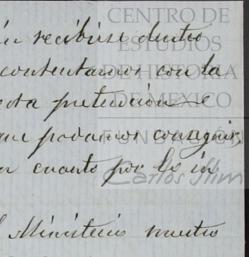 CENTRO DE
ESTUDIOS
DE HISTORIA
DE MEXICO
FUNDACIÓN
Carlos Slim
en recibirse dentro
contentamos con la
esta pretencion
que podamos conseguir,
en cuanto por lo in
l Ministerio nuestro